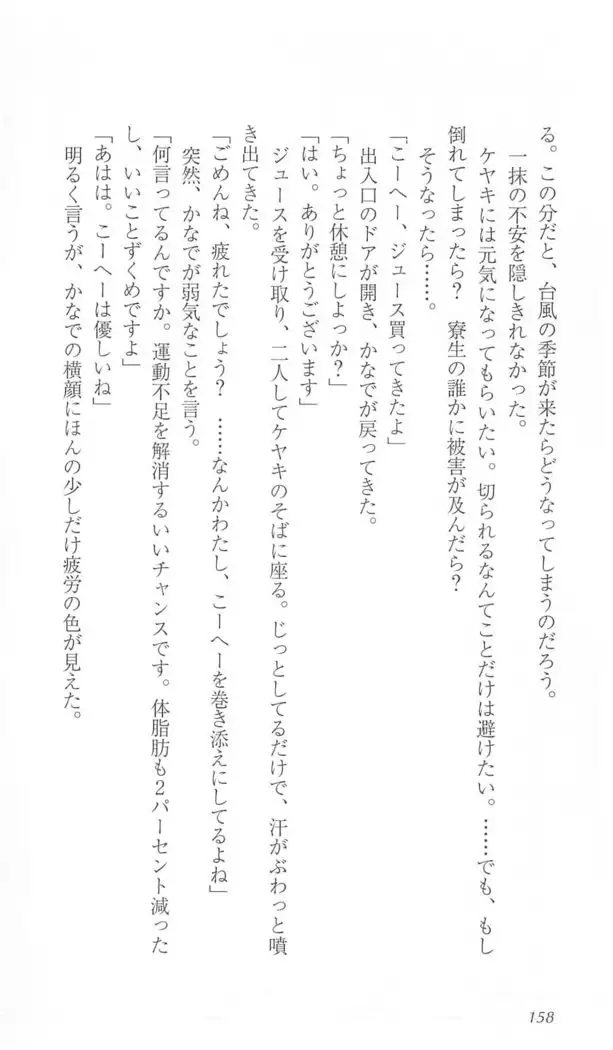 る。この分だと、台風の季節が来たらどうなってしまうのだろう。
一抹の不安を隠しきれなかった。
ケヤキには元気になってもらいたい。切られるなんてことだけは避けたい。……でも、もし
倒れてしまったら？　寮生の誰かに被害が及んだら？
そうなったら……。
「こーへー、ジュース買ってきたよ」
出入口のドアが開き、かなでが戻ってきた。
「ちょっと休憩にしよっか？」
「はい。ありがとうございます」
ジュースを受け取り、二人してケヤキのそばに座る。じっとしてるだけで、汗がぶわっと噴
き出てきた。
「ごめんね、疲れたでしょう？　……なんかわたし、こーへーを巻き添えにしてるよね」
突然、かなでが弱気なことを言う。
「何言ってるんですか。運動不足を解消するいいチャンスです。体脂肪も2パーセント減った
し、いいことずくめですよ」
「あはは。こーへーは優しいね」
明るく言うが、かなでの横顔にほんの少しだけ疲労の色が見えた。
158